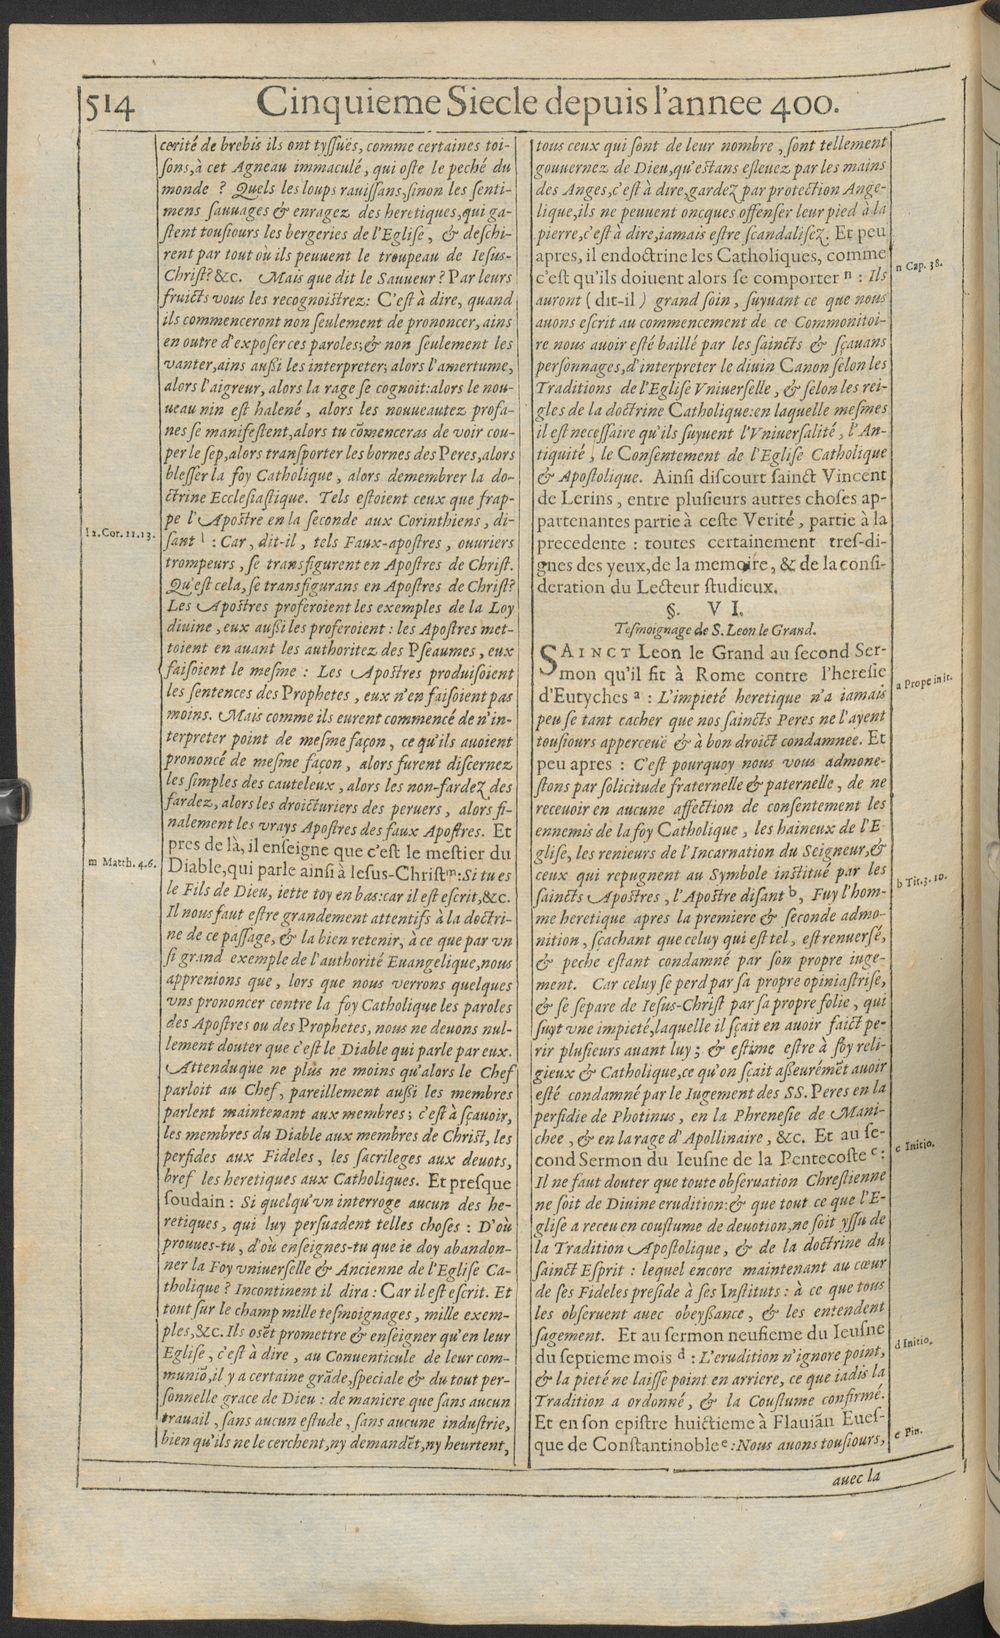 514 Cinquieme Siecle depuis l'annee 400.
cerité de brebis ils ont tyſſuës, comme certaines toi-
ſons, à cet Agneau immaculé, qui oſte le peché du
monde ? Quels les loups rauiſſans, ſinon les ſenti-
mens ſauuages & enragez des heretiques, qui ga-
ſtent touſiours les bergeries de l'Egliſe, & deſchi-
rent par tout où ils peuuent le troupeau de Ieſus-
Chriſt? &c. Mais que dit le Sauueur ? Par leurs
fruicts vous les recognoiſtrez: C'eſt à dire, quand
ils commenceront non ſeulement de prononcer, ains
en outre d'expoſer ces paroles; & non ſeulement les
vanter, ains auſſi les interpreter; alors l'amertume,
alors l'aigreur, alors la rage ſe cognoit: alors le nou-
ueau nin eſt halené, alors les nouueautez profa-
nes ſe manifeſtent, alors tu cõmenceras de voir cou-
per le ſep, alors tranſporter les bornes des Peres, alors
bleſſer la foy Catholique, alors demembrer la do-
ctrine Eccleſiaſtique. Tels eſtoient ceux que frap-
pe l'Apoſtre en la ſeconde aux Corinthiens, di-
l 2. Cor. 11. 13.
ſant l : Car, dit-il, tels Faux-apoſtres, ouuriers
trompeurs, ſe transfigurent en Apoſtres de Chriſt.
Qu'eſt cela, ſe transfigurans en Apoſtres de Chriſt?
Les Apoſtres proferoient les exemples de la Loy
diuine, eux auſſi les proferoient : les Apoſtres met-
toient en auant les authoritez des Pſeaumes, eux
faiſoient le meſme : Les Apoſtres produiſoient
les ſentences des Prophetes, eux n'en faiſoient pas
moins. Mais comme ils eurent commencé de n'in-
terpreter point de meſme façon, ce qu'ils auoient
prononcé de meſme façon, alors furent diſcernez
les ſimples des cauteleux, alors les non-fardez des
fardez, alors les droicturiers des peruers, alors fi-
nalement les vrays Apoſtres des faux Apoſtres. Et
pres de là, il enſeigne que c'eſt le meſtier du
m Matth. 4. 6.
Diable, qui parle ainſi à Ieſus-Chriſt m : Si tu es
le Fils de Dieu, iette toy en bas: car il eſt eſcrit, &c.
Il nous faut eſtre grandement attentifs à la doctri-
ne de ce paſſage, & la bien retenir, à ce que par vn
ſi grand exemple de l'authorité Euangelique, nous
apprenions que, lors que nous verrons quelques
vns prononcer contre la foy Catholique les paroles
des Apoſtres ou des Prophetes, nous ne deuons nul-
lement douter que c'eſt le Diable qui parle par eux.
Attendu que ne plus ne moins qu'alors le Chef
parloit au Chef, pareillement auſſi les membres
parlent maintenant aux membres; c'eſt à ſçauoir,
les membres du Diable aux membres de Chriſt, les
perfides aux Fideles, les ſacrileges aux deuots,
bref les heretiques aux Catholiques. Et preſque
ſoudain : Si quelqu'vn interroge aucun des he-
retiques, qui luy perſuadent telles choſes : D'où
prouues-tu, d'où enſeignes-tu que ie doy abandon-
ner la Foy vniuerſelle & Ancienne de l'Egliſe Ca-
tholique ? Incontinent il dira : Car il eſt eſcrit. Et
tout ſur le champ mille teſmoignages, mille exem-
ples, &c. Ils oſẽt promettre & enſeigner qu'en leur
Egliſe, c'eſt à dire, au Conuenticule de leur com-
muniõ, il y a certaine grãde, ſpeciale & du tout per-
ſonnelle grace de Dieu : de maniere que ſans aucun
trauail, ſans aucun eſtude, ſans aucune induſtrie,
bien qu'ils ne le cerchent, ny demandẽt, ny heurtent,
tous ceux qui ſont de leur nombre, ſont tellement
gouuernez de Dieu, qu'eſtans eſleuez par les mains
des Anges, c'eſt à dire, gardez par protection Ange-
lique, ils ne peuuent oncques offenſer leur pied à la
pierre, c'eſt à dire, iamais eſtre ſcandaliſez. Et peu
apres, il endoctrine les Catholiques, comme
c'eſt qu'ils doiuent alors ſe comporter n : Ils
n Cap. 38.
auront ( dit-il ) grand ſoin, ſuyuant ce que nous
auons eſcrit au commencement de ce Commonitoi-
re nous auoir eſté baillé par les ſaincts & ſçauans
perſonnages, d'interpreter le diuin Canon ſelon les
Traditions de l'Egliſe Vniuerſelle, & ſelon les rei-
gles de la doctrine Catholique: en laquelle meſmes
il eſt neceſſaire qu'ils ſuyuent l'Vniuerſalité, l'An-
tiquité, le Conſentement de l'Egliſe Catholique
& Apoſtolique. Ainſi diſcourt ſainct Vincent
de Lerins, entre pluſieurs autres choſes ap-
partenantes partie à ceſte Verité, partie à la
precedente : toutes certainement treſ-di-
gnes des yeux, de la memoire, & de la conſi-
deration du Lecteur ſtudieux.
§. VI.
Teſmoignage de S. Leon le Grand.
SAINCT Leon le Grand au ſecond Ser-
mon qu'il fit à Rome contre l'hereſie
d'Eutyches a : L'impieté heretique n'a iamais
a Prope init.
peu ſe tant cacher que nos ſaincts Peres ne l'ayent
touſiours apperceuë & à bon droict condamnee. Et
peu apres : C'eſt pourquoy nous vous admone-
ſtons par ſolicitude fraternelle & paternelle, de ne
receuoir en aucune affection de conſentement les
ennemis de la foy Catholique, les haineux de l'E
gliſe, les renieurs de l'Incarnation du Seigneur, &
ceux qui repugnent au Symbole inſtitué par les
ſaincts Apoſtres, l'Apoſtre diſant b, Fuy l'hom-
b Tit. 3. 10.
me heretique apres la premiere & ſeconde admo-
nition, ſçachant que celuy qui eſt tel, eſt renuerſé,
& peche eſtant condamné par ſon propre iuge-
ment. Car celuy ſe perd par ſa propre opiniaſtriſe,
& ſe ſepare de Ieſus-Chriſt par ſa propre folie, qui
ſuyt vne impieté, laquelle il ſçait en auoir faict pe-
rir pluſieurs auant luy; & eſtime eſtre à ſoy reli-
gieux & Catholique, ce qu'on ſçait aſſeurémẽt auoir
eſté condamné par le Iugement des SS. Peres en la
perfidie de Photinus, en la Phreneſie de Mani-
chee, & en la rage d'Apollinaire, &c. Et au ſe-
cond Sermon du Ieuſne de la Pentecoſte c :
c Initio.
Il ne faut douter que toute obſeruation Chreſtienne
ne ſoit de Diuine erudition: & que tout ce que l'E-
gliſe a receu en couſtume de deuotion, ne ſoit yſſu de
la Tradition Apoſtolique, & de la doctrine du
ſainct Eſprit : lequel encore maintenant au cœur
de ſes Fideles preſide à ſes Inſtituts : à ce que tous
les obſeruent auec obeyſſance, & les entendent
ſagement. Et au ſermon neufieme du Ieuſne
du ſeptieme mois d : L'erudition n'ignore point,
d Initio.
& la pieté ne laiſſe point en arriere, ce que iadis la
Tradition a ordonné, & la Couſtume confirmé.
Et en ſon epiſtre huictieme à Flauiãn Eueſ-
que de Conſtantinoble e : Nous auons touſiours,
e Pin.
auec la